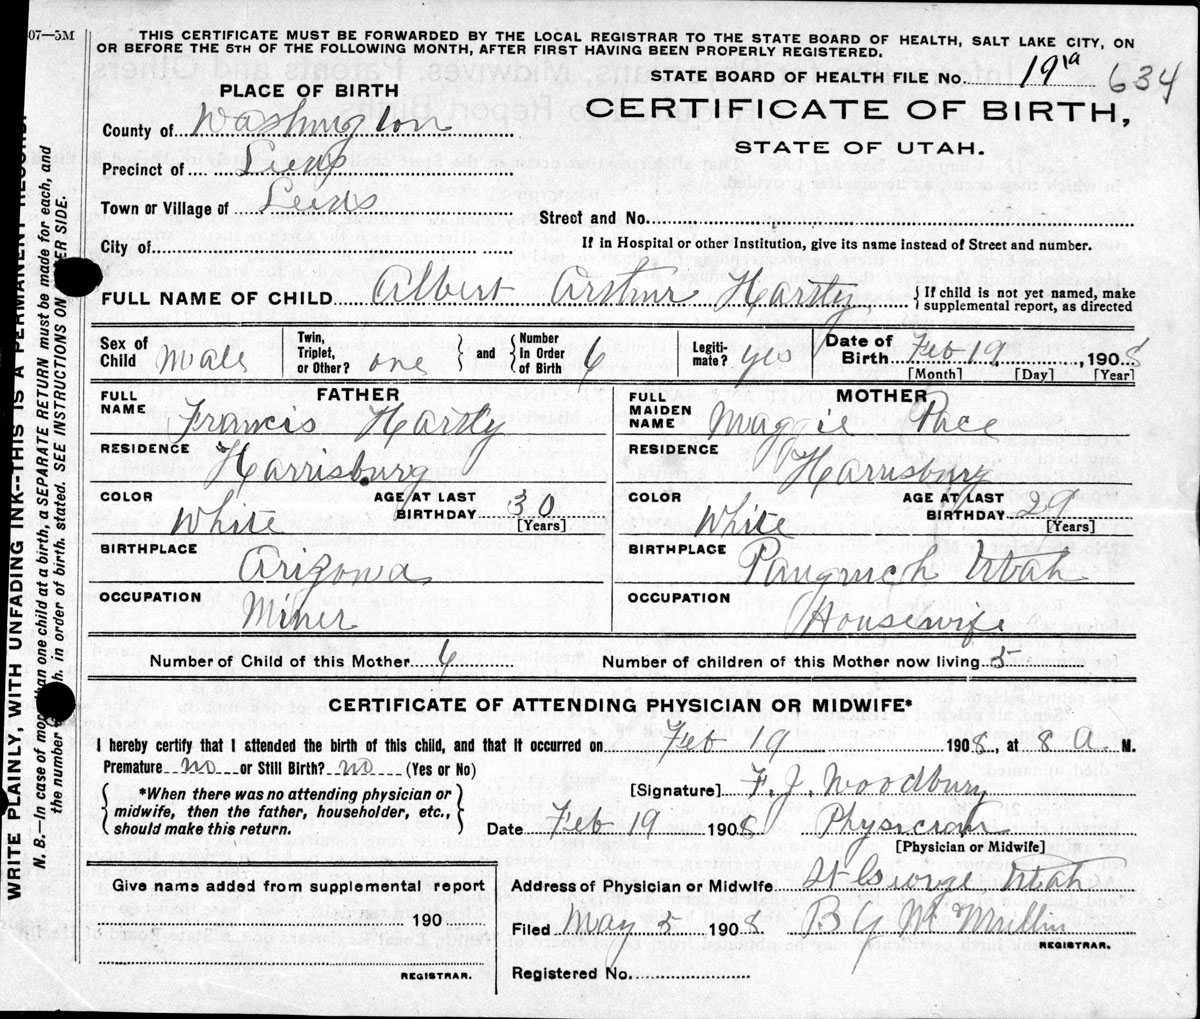 07—5M
THIS CERTIFICATE MUST BE FORWARDED BY THE LOCAL REGISTRAR TO THE STATE BOARD OF HEALTH, SALT LAKE CITY, ON
OR BEFORE THE 5TH OF THE FOLLOWING MONTH, AFTER FIRST HAVING BEEN PROPERLY REGISTERED.
STATE BOARD OF HEALTH FILE No. 19 1a 634
PLACE OF BIRTH
CERTIFICATE OF BIRTH,
STATE OF UTAH.
County of Washington
Precinct of Leeds
Town or Village of Leeds
Street and No.
City of
If in Hospital or other Institution, give its name instead of Street and number.
FULL NAME OF CHILD Albert Arthur Hartly { If child is not yet named, make
supplemental report, as directed
Sex of Child Male
Twin, Triplet, or Other? one } and { Number In Order of Birth 6
Legiti-mate? yes
Date of Birth Feb 19, 1908
[Month] [Day] [Year]
FATHER
FULL NAME Francis Hartly
RESIDENCE Harrisburg
COLOR White AGE AT LAST BIRTHDAY 30 [Years]
BIRTHPLACE Arizona
OCCUPATION Miner
MOTHER
FULL MAIDEN NAME Maggie Pace
RESIDENCE Harrisburg
COLOR White AGE AT LAST BIRTHDAY 29 [Years]
BIRTHPLACE Panguich Utah
OCCUPATION Housewife
Number of Child of this Mother 6 Number of children of this Mother now living 5
CERTIFICATE OF ATTENDING PHYSICIAN OR MIDWIFE*
I hereby certify that I attended the birth of this child, and that it occurred on Feb 19 1908, at 8 A. M.
Premature no or Still Birth? no (Yes or No)
{ *When there was no attending physician or
midwife, then the father, householder, etc.,
should make this return. }
[Signature] F. J. Woodbury
Date Feb 19 1908 Physician
[Physician or Midwife]
Give name added from supplemental report
190
REGISTRAR.
Address of Physician or Midwife St George Utah
Filed May 5 1908 B Y McMullin
REGISTRAR.
Registered No.
WRITE PLAINLY, WITH UNFADING INK--THIS IS A PERMANENT RECORD.
N. B.—In case of more than one child at a birth, a SEPARATE RETURN must be made for each, and
the number in order of birth. stated. SEE INSTRUCTIONS ON SIDE.